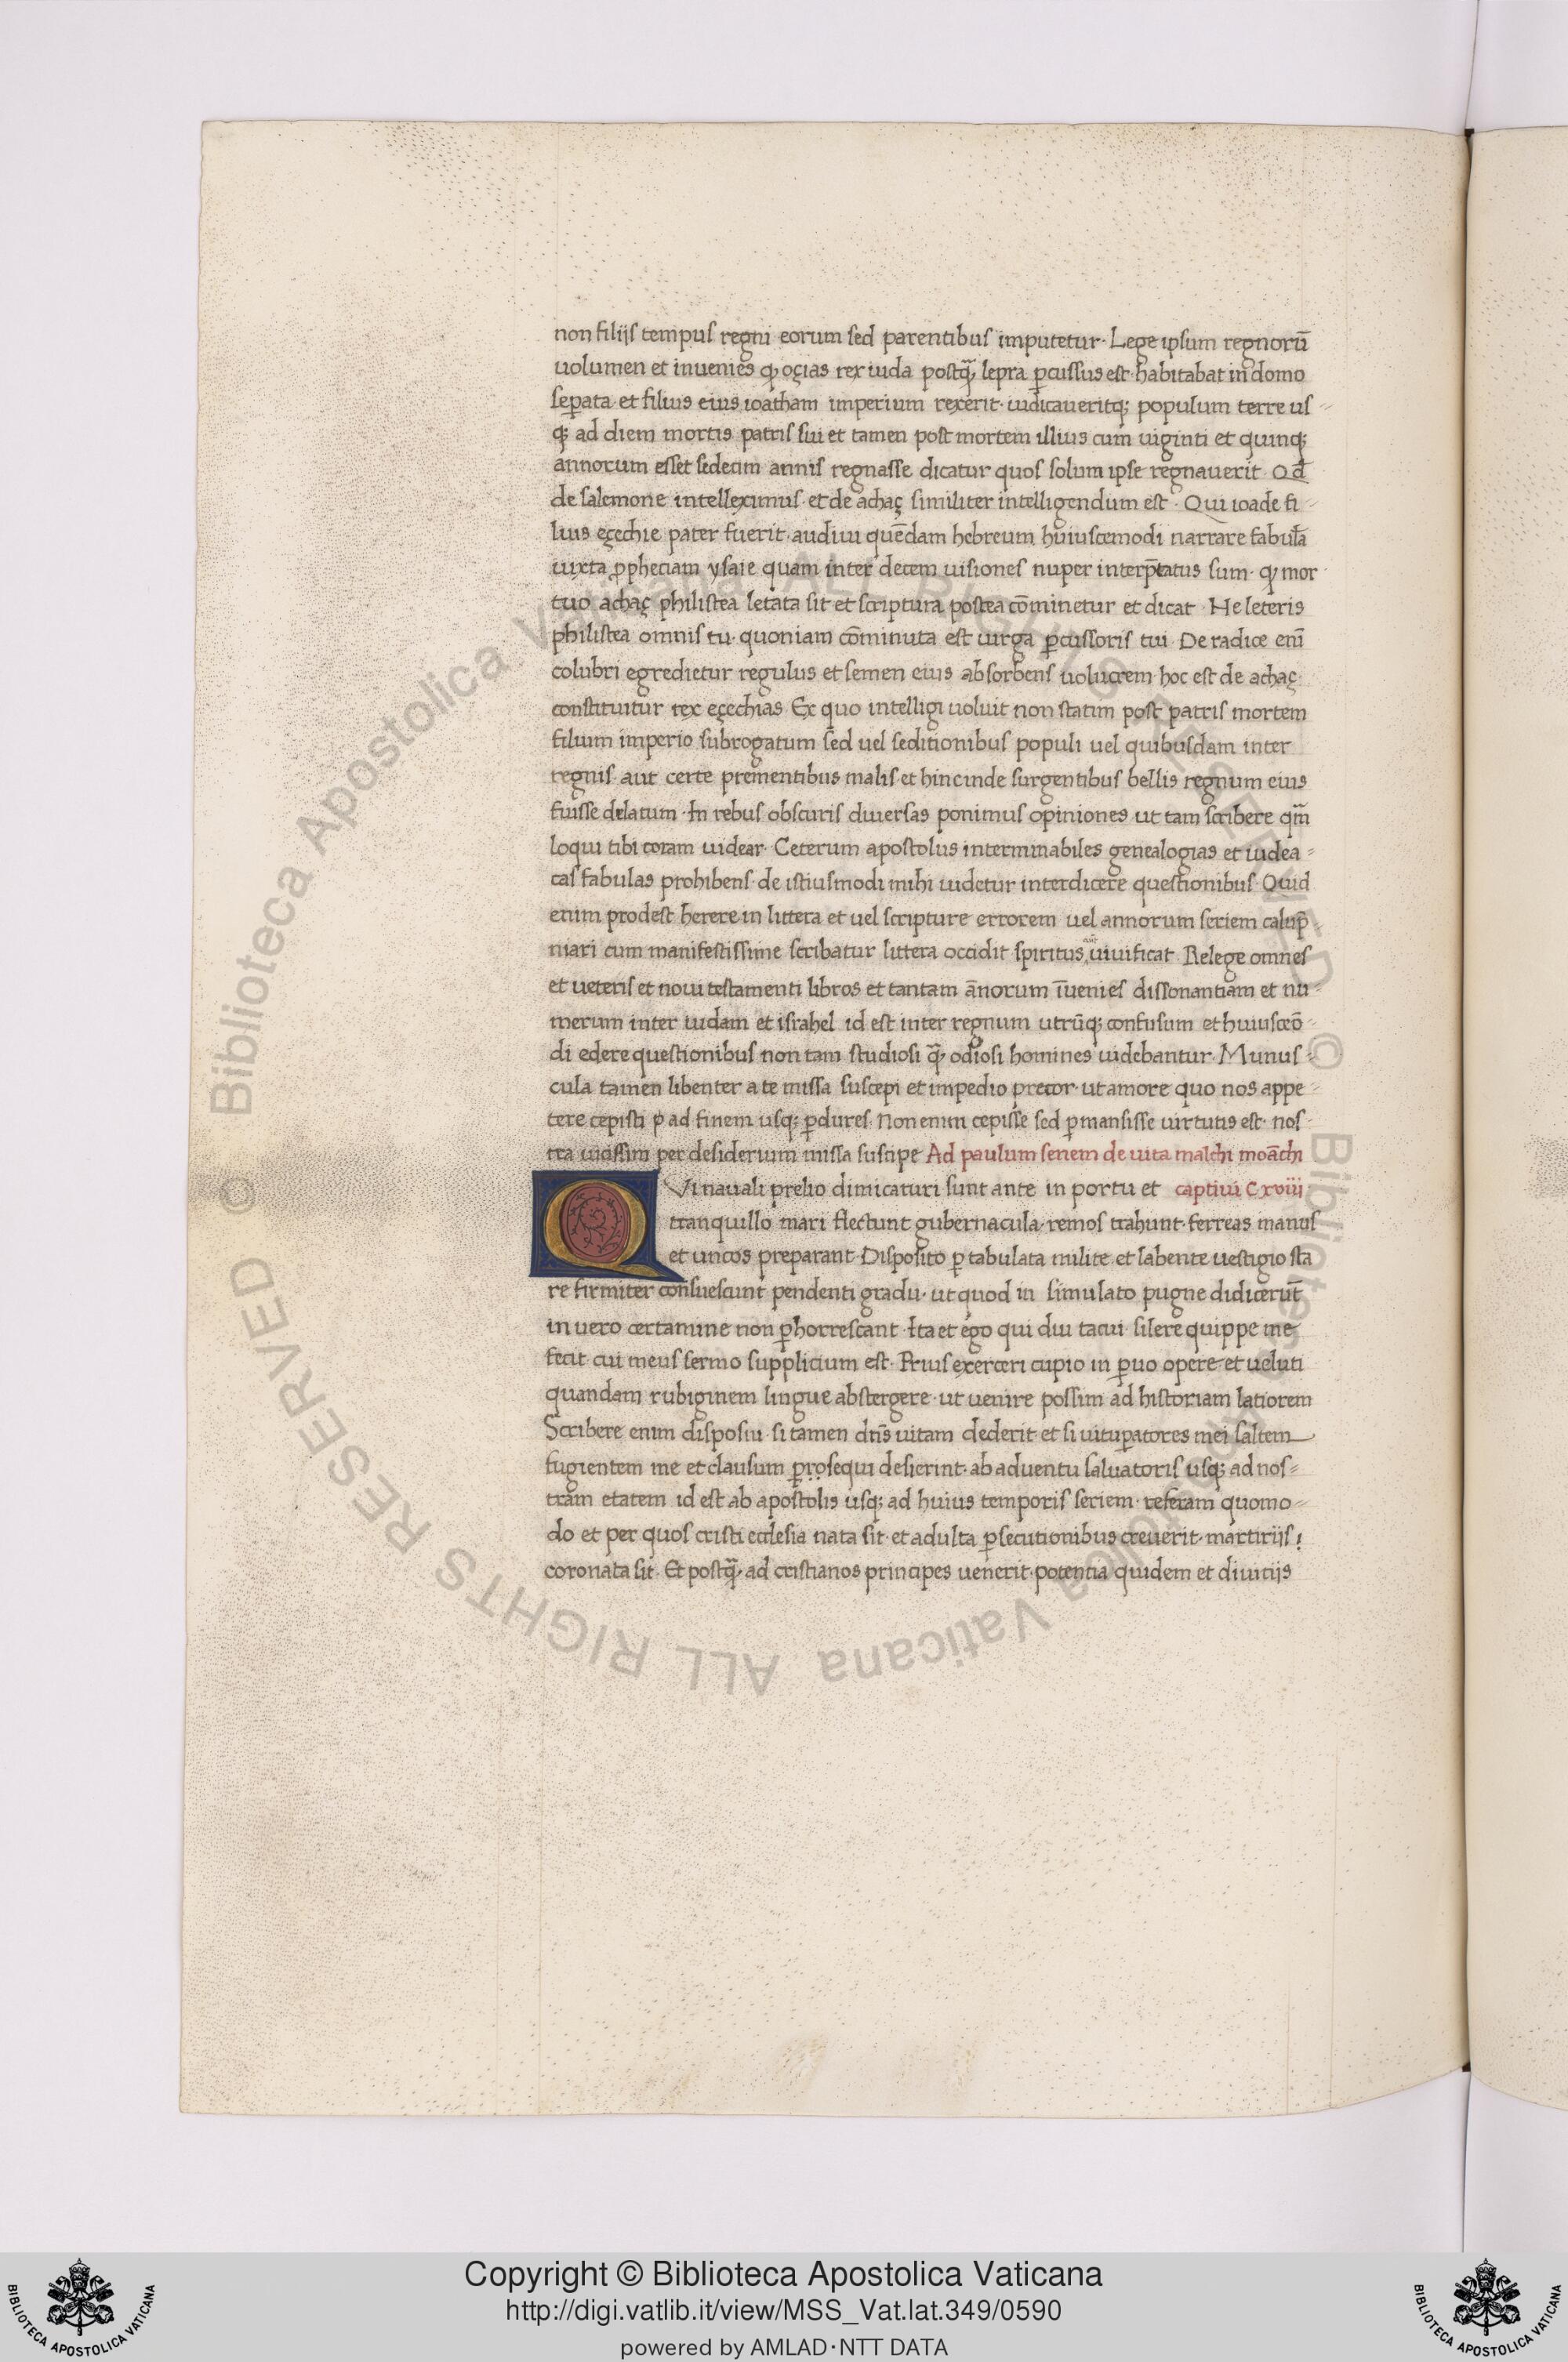 non filijs tempus regni eorum sed parentibus imputetur · Lege ipsum regnorū
uolumen et inuenies ꝙ oçias rex iuda postq̄ lepra ꝑcussus est · habitabat in domo
seꝑata et filius eius ioatham imperium rexerit · iudicaueritq; populum terre us
q; ad diem mortis patris sui et tamen post mortem illius cum uiginti et quinq;
annorum esset sedecim annis regnasse dicatur quos solum ipse regnauerit · Qd̄
de salemone intelleximus · et de achaç similiter intelligendum est · Qui ioade fi
lius eçechie pater fuerit · audiui quēdam hebreum huiuscemodi narrare fabulā
iuxta ꝓpheciam ysaie quam inter decem uisiones nuper interp̄tatus sum · ꝙ mor
tuo achaç philistea letata sit et scriptura postea cōminetur et dicat · He leteris
philistea omnis tu · quoniam cōminuta est uirga ꝑcussoris tui · De radice enī
colubri egredietur regulus et semen eius absorbens uolucrem · hoc est de achaç
constituitur rex eçechias · Ex quo intelligi uoluit non statim post patris mortem
filium imperio subrogatum sed uel seditionibus populi uel quibusdam inter
regnis · aut certe prementibus malis et hincinde surgentibus bellis regnum eius
fuisse delatum · In rebus obscuris diuersas ponimus opiniones ut tam scribere qm̄
loqui tibi coram uidear · Ceterum apostolus interminabiles genealogias et iudea =
cas fabulas prohibens · de istiusmodi mihi uidetur interdicere questionibus · Quid
enim prodest herere in littera et uel scripture errorem uel annorum seriem calup̄
niari cum manifestissime scribatur littera occidit spiritus uiuificat · Relege omnes
et ueteris et noui testamenti libros et tantam ānorum īuenies dissonantiam et nu =
merum inter iudam et israhel id est inter regnum utrūq; confusum et huiusceō =
di edere questionibus non tam studiosi q̄ odiosi homines uidebantur · Munus =
cula tamen libenter a te missa suscepi et impedio precor · ut amore quo nos appe =
tere cepisti ꝑ ad finem usq; ꝑdures · Non enim cepisse sed ꝑmansisse uirtutis est · nos =
tra uicissim per desiderium missa suscipe Ad paulum senem de uita malchi moāchi
QVi nauali prelio dimicaturi sunt ante in portu et captiui Cxviii
tranquillo mari flectunt gubernacula · remos trahunt · ferreas manus
et uncos preparant · Disposito ꝑ tabulata milite · et labente uestigio sta
re firmiter consuescunt pendenti gradu · ut quod in simulato pugne didicerūt
in uero certamine non ꝑhorrescant · Ita et ego qui diu tacui · silere quippe me
fecit cui meus sermo supplicium est · Prius exerceri cupio in ꝑuo opere et ueluti
quandam rubiginem lingue abstergere · ut uenire possim ad historiam latiorem
Scribere enim disposui · si tamen dn̄s uitam dederit et si uituꝑatores mei saltem
fugientem me et clausum ꝑrosequi desierint · ab aduentu saluatoris usq; ad nos =
tram etatem id est ab apostolis usq; ad huius temporis seriem · referam quomo =
do et per quos cristi ecclesia nata sit · et adulta ꝑsecutionibus creuerit · martirijs
coronata sit · Et postq̄ ad cristianos principes uenerit · potentia quidem et diuitijs
Copyright © Biblioteca Apostolica Vaticana
http://digi.vatlib.it/view/MSS_Vat.lat.349/0590
powered by AMLAD·NTT DATA
BIBLIOTECA APOSTOLICA VATICANA
BIBLIOTECA APOSTOLICA VATICANA
© Biblioteca Apostolica Vaticana ALL RIGHTS RESERVED © Biblioteca Apostolica Vaticana ALL RIGHTS RESERVED